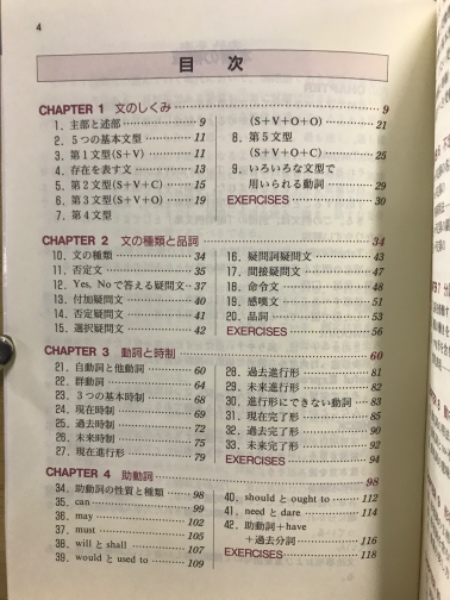 4
目 次
CHAPTER 1 文のしくみ 9
1. 主部と述部 9
2. 5つの基本文型 11
3. 第1文型(S+V) 11
4. 存在を表す文 13
5. 第2文型(S+V+C) 15
6. 第3文型(S+V+O) 19
7. 第4文型
(S+V+O+O) 21
8. 第5文型
(S+V+O+C) 25
9. いろいろな文型で
用いられる動詞 29
EXERCISES 30
CHAPTER 2 文の種類と品詞 34
10. 文の種類 34
11. 否定文 35
12. Yes, Noで答える疑問文 37
13. 付加疑問文 40
14. 否定疑問文 41
15. 選択疑問文 42
16. 疑問詞疑問文 43
17. 間接疑問文 47
18. 命令文 48
19. 感嘆文 51
20. 品詞 53
EXERCISES 56
CHAPTER 3 動詞と時制 60
21. 自動詞と他動詞 60
22. 群動詞 64
23. 3つの基本時制 68
24. 現在時制 69
25. 過去時制 72
26. 未来時制 75
27. 現在進行形 79
28. 過去進行形 81
29. 未来進行形 82
30. 進行形にできない動詞 83
31. 現在完了形 85
32. 過去完了形 90
33. 未来完了形 92
EXERCISES 94
CHAPTER 4 助動詞 98
34. 助動詞の性質と種類 98
35. can 99
36. may 102
37. must 105
38. will と shall 107
39. would と used to 109
40. should と ought to 112
41. need と dare 114
42. 助動詞+have
+過去分詞 116
EXERCISES 118